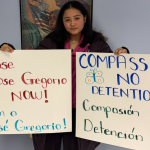 ose
ose Gregorio
NOW!
n a
sé Gregorio!
COMPASS
NO
DETENTIO
Compasión
Detención